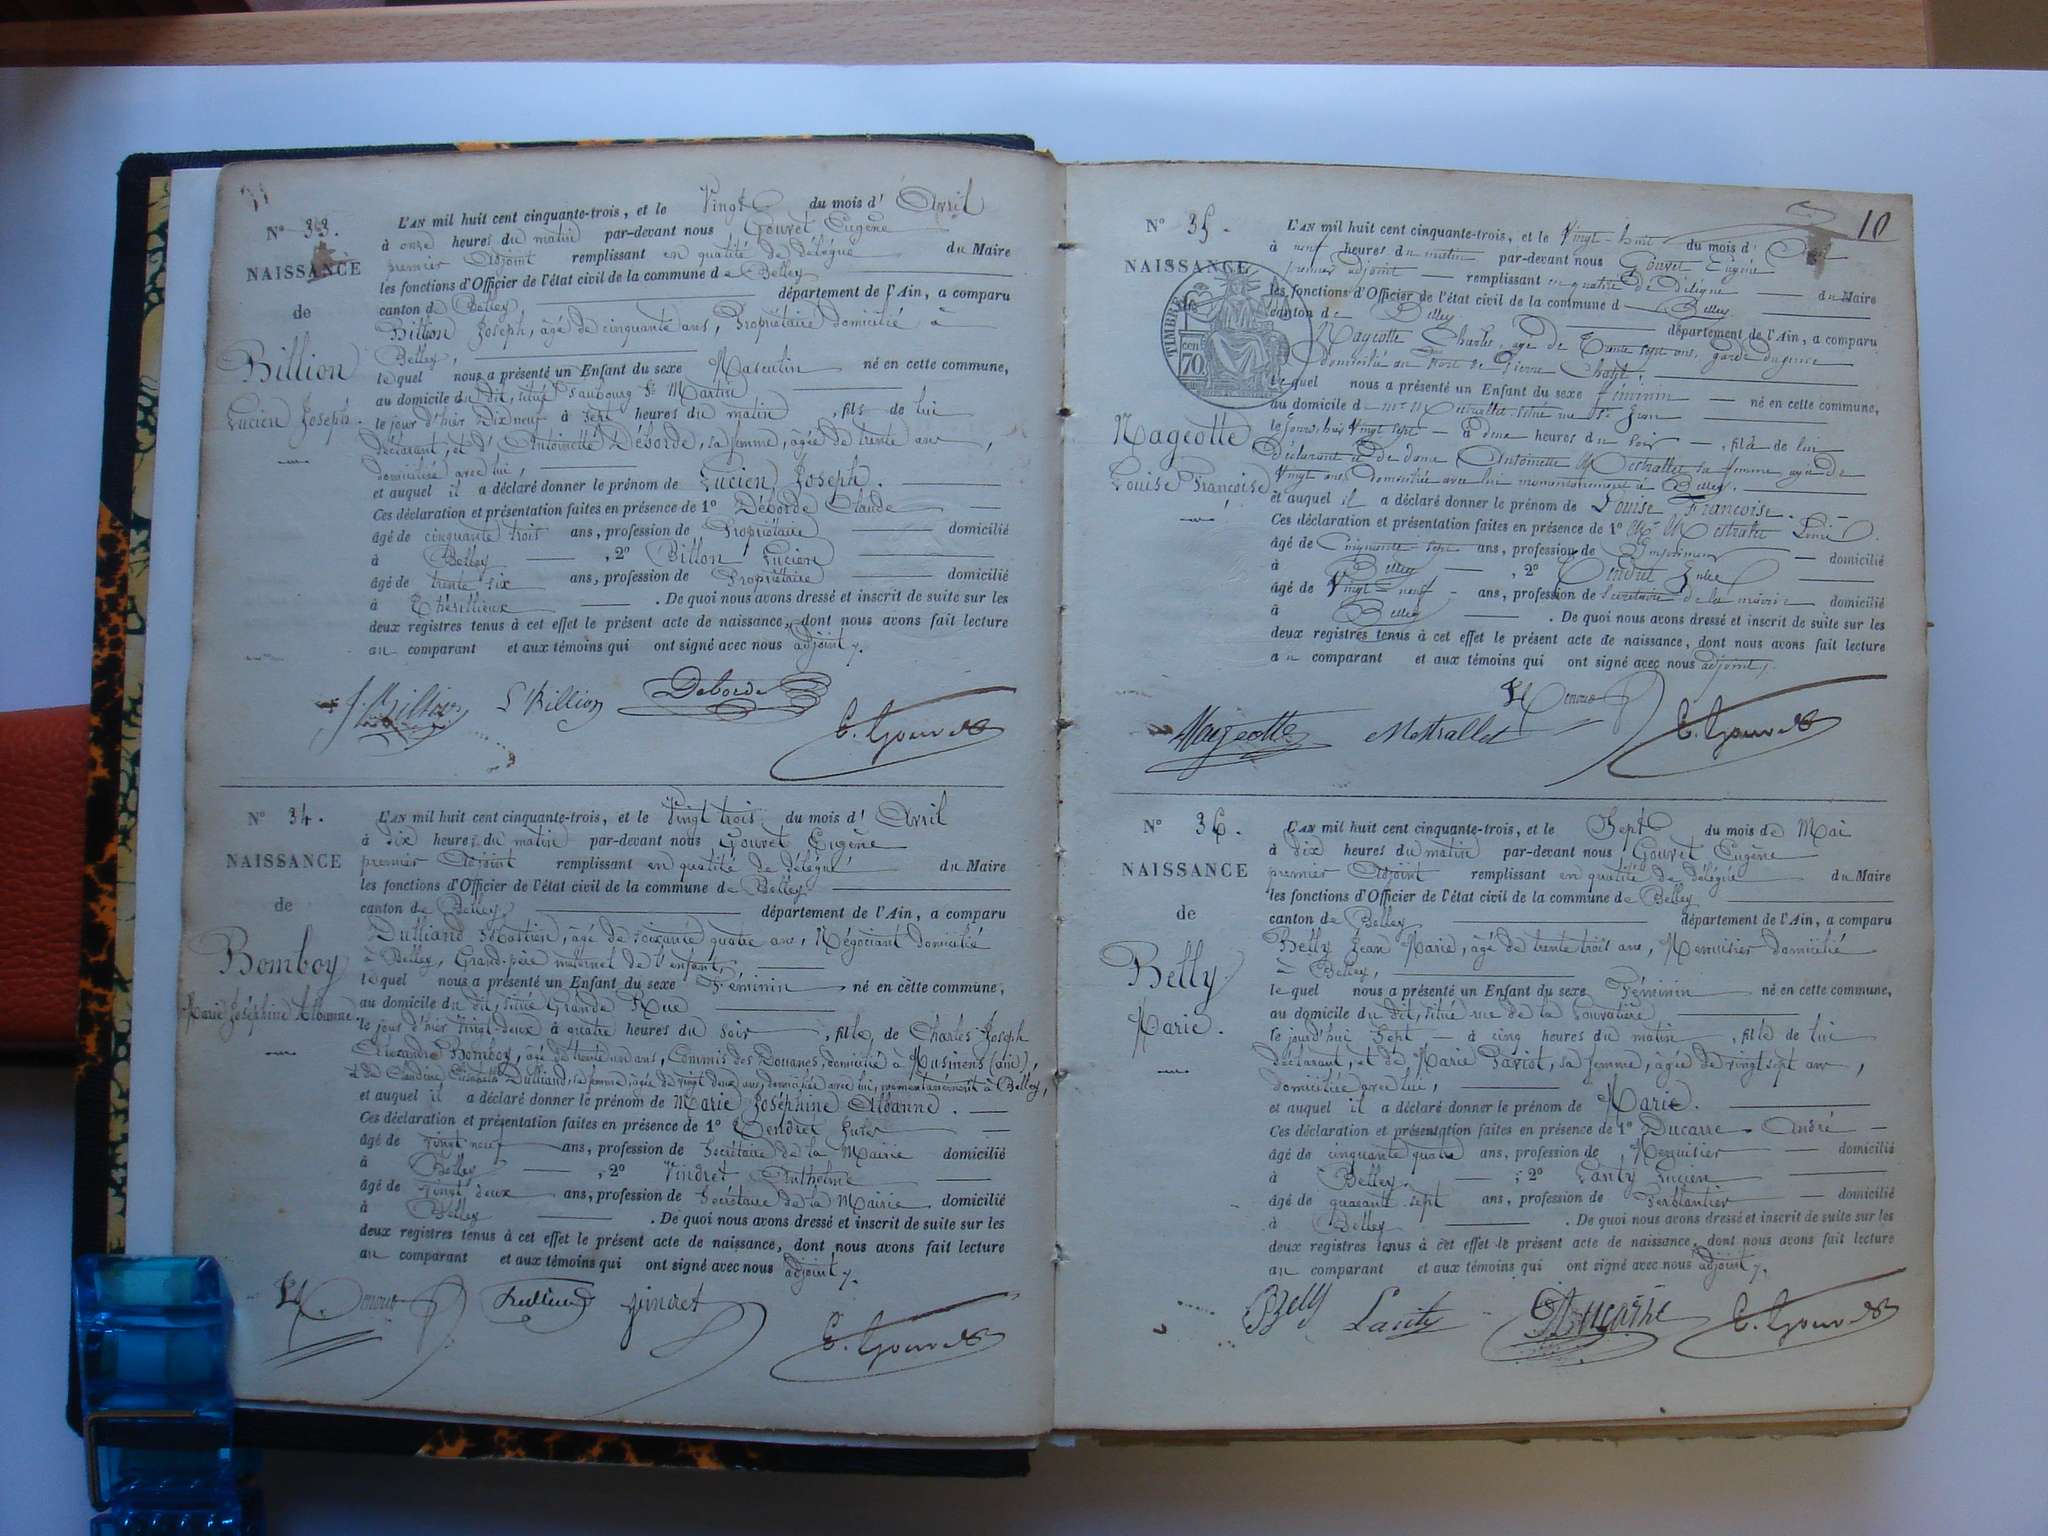 N° 33.
NAISSANCE
de
Billion
Lucien Joseph.
L'AN mil huit cent cinquante-trois, et le Vingt du mois d' Avril
à onze heures du matin par-devant nous Gouvet Eugène
premier Adjoint remplissant en qualité de délégué du Maire
les fonctions d'Officier de l'état civil de la commune de Belley
canton de Belley département de l'Ain, a comparu
Billion Joseph, âgé de cinquante ans, Propriétaire domicilié à
Belley,
lequel nous a présenté un Enfant du sexe Masculin né en cette commune,
au domicile du dit, situé faubourg St Martin
le jour d'hier Dix neuf à sept heures du matin, fils de lui
déclarant, et d' Antoinette Déborde, sa femme, âgée de trente ans,
domiciliée avec lui,
et auquel il a déclaré donner le prénom de Lucien Joseph.
Ces déclaration et présentation faites en présence de 1° Déborde Claude
âgé de cinquante trois ans, profession de Propriétaire domicilié
à Belley, 2° Billon Lucien
âgé de trente six ans, profession de Propriétaire domicilié
à . De quoi nous avons dressé et inscrit de suite sur les
deux registres tenus à cet effet le présent acte de naissance, dont nous avons fait lecture
au comparant et aux témoins qui ont signé avec nous adjoint
J. Billion L. Billion Deborde
E. Gouvet
N° 34.
NAISSANCE
de
Bomboy
Marie Joséphine Albanne.
L'AN mil huit cent cinquante-trois, et le Vingt trois du mois d' Avril
à dix heures du matin par-devant nous Gouvet Eugène
premier Adjoint remplissant en qualité de délégué du Maire
les fonctions d'Officier de l'état civil de la commune de Belley
canton de Belley département de l'Ain, a comparu
Dulliand Sébastien, âgé de soixante quatre ans, Négociant domicilié
à Belley, Grand-père maternel de l'enfant,
lequel nous a présenté un Enfant du sexe Féminin né en cette commune,
au domicile du dit, situé Grande Rue
le jour d'hier Vingt deux à quatre heures du soir, fille de Charles Joseph
Alexandre Bomboy, âgé de trente un ans, Commis des Douanes, domicilié à Musinens (ain),
et de Claudine Elisabeth Dulliand, sa femme, âgée de vingt deux ans, domiciliée avec lui, momentanément à Belley,
et auquel il a déclaré donner le prénom de Marie Joséphine Albanne.
Ces déclaration et présentation faites en présence de 1° Jules
âgé de vingt neuf ans, profession de Secrétaire de la Mairie domicilié
à Belley, 2° Vindret Anthelme
âgé de vingt deux ans, profession de Secrétaire de la Mairie domicilié
à Belley. De quoi nous avons dressé et inscrit de suite sur les
deux registres tenus à cet effet le présent acte de naissance, dont nous avons fait lecture
au comparant et aux témoins qui ont signé avec nous adjoint
Dulliand Vindret
E. Gouvet
10
N° 35.
NAISSANCE
TIMBRE
70 cen
Nageotte
Louise Françoise
L'AN mil huit cent cinquante-trois, et le Vingt-huit du mois d' Avril
à neuf heures du matin par-devant nous Gouvet Eugène
premier adjoint remplissant en qualité de délégué du Maire
les fonctions d'Officier de l'état civil de la commune de Belley
canton de Belley département de l'Ain, a comparu
Nageotte Charles, âgé de Trente sept ans, garde du génie
domicilié au Fort de Pierre Chatel,
lequel nous a présenté un Enfant du sexe féminin né en cette commune,
au domicile de Mr Mestrallet situé rue St Jean
le jour d'hier Vingt sept à onze heures du soir, fille de lui
déclarant et de dame Antoinette Mestrallet sa femme, âgée de
Vingt ans, domiciliée avec lui momentanément à Belley.
et auquel il a déclaré donner le prénom de Louise Françoise.
Ces déclaration et présentation faites en présence de 1° Mr Mestrallet Louis
âgé de Cinquante-sept ans, profession de domicilié
à Belley, 2° Jules
âgé de Vingt-neuf ans, profession de Secrétaire de la mairie domicilié
à Belley. De quoi nous avons dressé et inscrit de suite sur les
deux registres tenus à cet effet le présent acte de naissance, dont nous avons fait lecture
au comparant et aux témoins qui ont signé avec nous adjoint,
Nageotte Mestrallet
E. Gouvet
N° 36.
NAISSANCE
de
Belly
Marie.
L'AN mil huit cent cinquante-trois, et le Sept du mois de Mai
à dix heures du matin par-devant nous Gouvet Eugène
premier Adjoint remplissant en qualité de délégué du Maire
les fonctions d'Officier de l'état civil de la commune de Belley
canton de Belley département de l'Ain, a comparu
Belly Jean Marie, âgé de trente trois ans, Menuisier domicilié
à Belley,
lequel nous a présenté un Enfant du sexe Féminin né en cette commune,
au domicile du dit, situé rue de la Louvatière
le jourd'hui Sept à cinq heures du matin, fille de lui
déclarant, et de Marie Paviot, sa femme, âgée de vingt sept ans,
domiciliée avec lui,
et auquel il a déclaré donner le prénom de Marie.
Ces déclaration et présentation faites en présence de 1° Ducarre André
âgé de cinquante quatre ans, profession de Menuisier domicilié
à Belley, 2° Lanty Lucien
âgé de quarante sept ans, profession de Ferblantier domicilié
à Belley. De quoi nous avons dressé et inscrit de suite sur les
deux registres tenus à cet effet le présent acte de naissance, dont nous avons fait lecture
au comparant et aux témoins qui ont signé avec nous adjoint
Belly Lanty Ducarre E. Gouvet